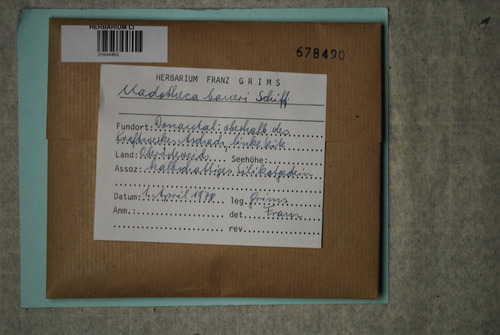 HERBARIUM LI
678490
HERBARIUM FRANZ GRIMS
Madotheca baueri Schiff
Fundort: Donautal: oberhalb des
Kraftwerkes Aschach, linke Seite
Land: Oberösterreich Seehöhe:
Assoz: kalkhaltiges Silikatgestein
Datum: 1. April 1978 leg. Grims
Anm.: det. Franz
rev.